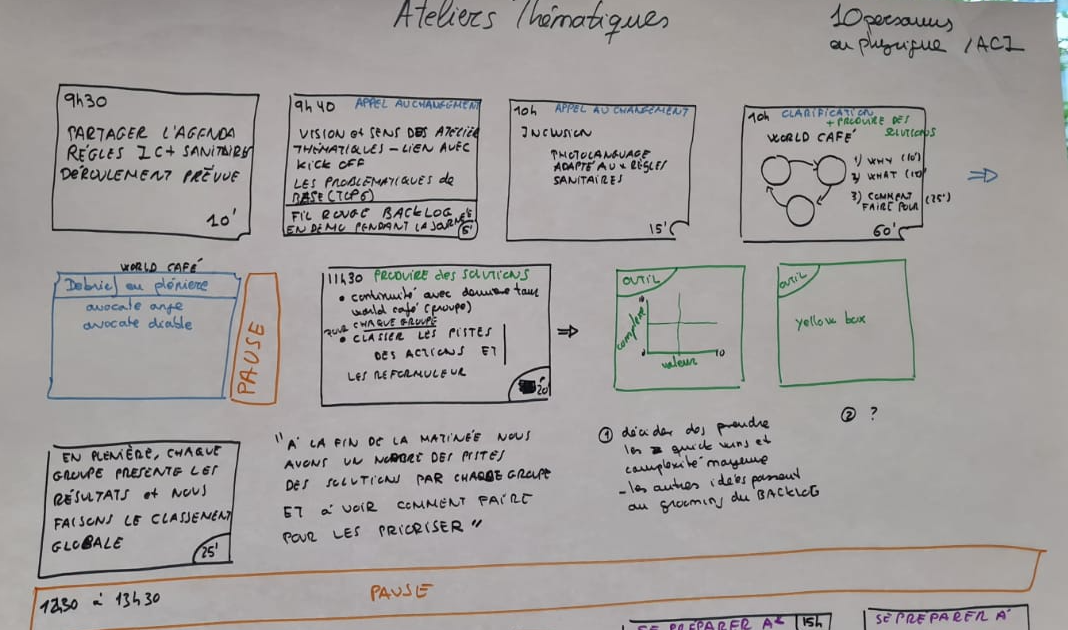 Ateliers Thématiques
10 personnes
en physique / ACI
9h30
PARTAGER L'AGENDA
RÈGLES IC + SANITAIRES
DÉROULEMENT PRÉVUE
10'
9h40 APPEL AU CHANGEMENT
VISION et SENS DES ATELIER
THÉMATIQUES - LIEN AVEC
KICK OFF
LES PROBLÉMATIQUES de
BASE (TOP 6)
FIL ROUGE BACKLOG
EN DEMO PENDANT LA JOURNÉE
5'
10h APPEL AU CHANGEMENT
INCLUSION
PHOTOLANGUAGE
ADAPTÉ AUX RÈGLES
SANITAIRES
15'
10h CLARIFICATION
+ PRODUIRE DES
SOLUTIONS
WORLD CAFÉ
1) WHY (10')
2) WHAT (10')
3) COMMENT
FAIRE POUR (25')
60'
WORLD CAFÉ
Debrief en plénière
avocate ange
avocate diable
PAUSE
11h30 PRODUIRE des SOLUTIONS
• continuité avec dernière tour
world café (groupe)
POUR CHAQUE GROUPE
• CLASSER LES PISTES
DES ACTIONS ET
LES REFORMULEUR
20'
OUTIL
10
complexe
0
10
valeur
OUTIL
yellow box
EN PLENIÈRE, CHAQUE
GROUPE PRESENTE LES
RÉSULTATS et NOUS
FAISONS LE CLASSEMENT
GLOBALE
25'
"À LA FIN DE LA MATINÉE NOUS
AVONS UN NOMBRE DES PISTES
DES SOLUTIONS PAR CHAQUE GROUPE
ET à VOIR COMMENT FAIRE
POUR LES PRIORISER"
① décider des prendre
les quick wins et
complexité moyenne
- les autres idées passent
au grooming du BACKLOG
② ?
12h30 à 13h30 PAUSE
SE PRÉPARER A 15h
SE PRÉPARER À